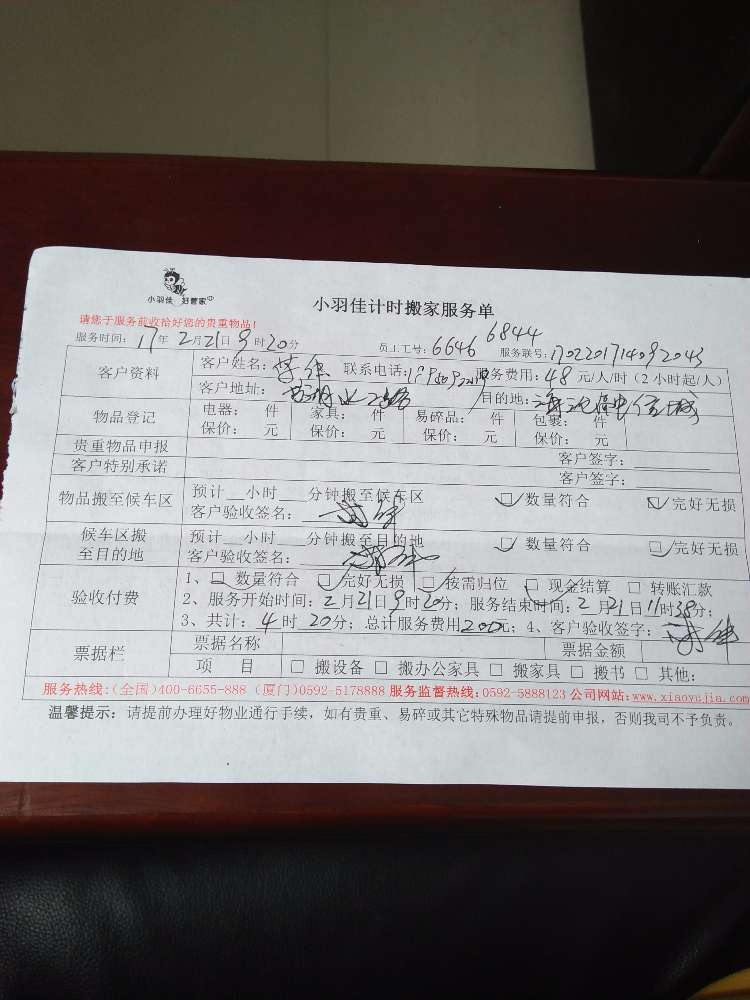 小羽佳 好管家
小羽佳计时搬家服务单
请您于服务前收拾好您的贵重物品！
服务时间：17年2月21日9时20分 员工工号：6646 6844 服务联号：
客户资料 客户姓名： 联系电话： 服务费用：48元/人/时（2小时起/人）
客户地址： 目的地：
物品登记 电器： 件 家具： 件 易碎品： 件 包裹： 件
保价： 元 保价： 元 保价： 元 保价： 元
贵重物品申报 客户签字：
客户特别承诺 客户签字：
物品搬至候车区 预计 小时 分钟搬至候车区 数量符合 完好无损
客户验收签名：
候车区搬至目的地 预计 小时 分钟搬至目的地 数量符合 完好无损
客户验收签名：
验收付费 1、 数量符合 完好无损 按需归位 现金结算 转账汇款
2、服务开始时间：2月21日9时20分；服务结束时间：2月21日11时38分；
3、共计：4时20分；总计服务费用200元；4、客户验收签字：
票据栏 票据名称 票据金额
项 目 □ 搬设备 □ 搬办公家具 □ 搬家具 □ 搬书 □ 其他：
服务热线：(全国)400-6655-888 (厦门)0592-5178888 服务监督热线：0592-5888123 公司网站：www.xiaoyujia.com
温馨提示：请提前办理好物业通行手续，如有贵重、易碎或其它特殊物品请提前申报，否则我司不予负责。